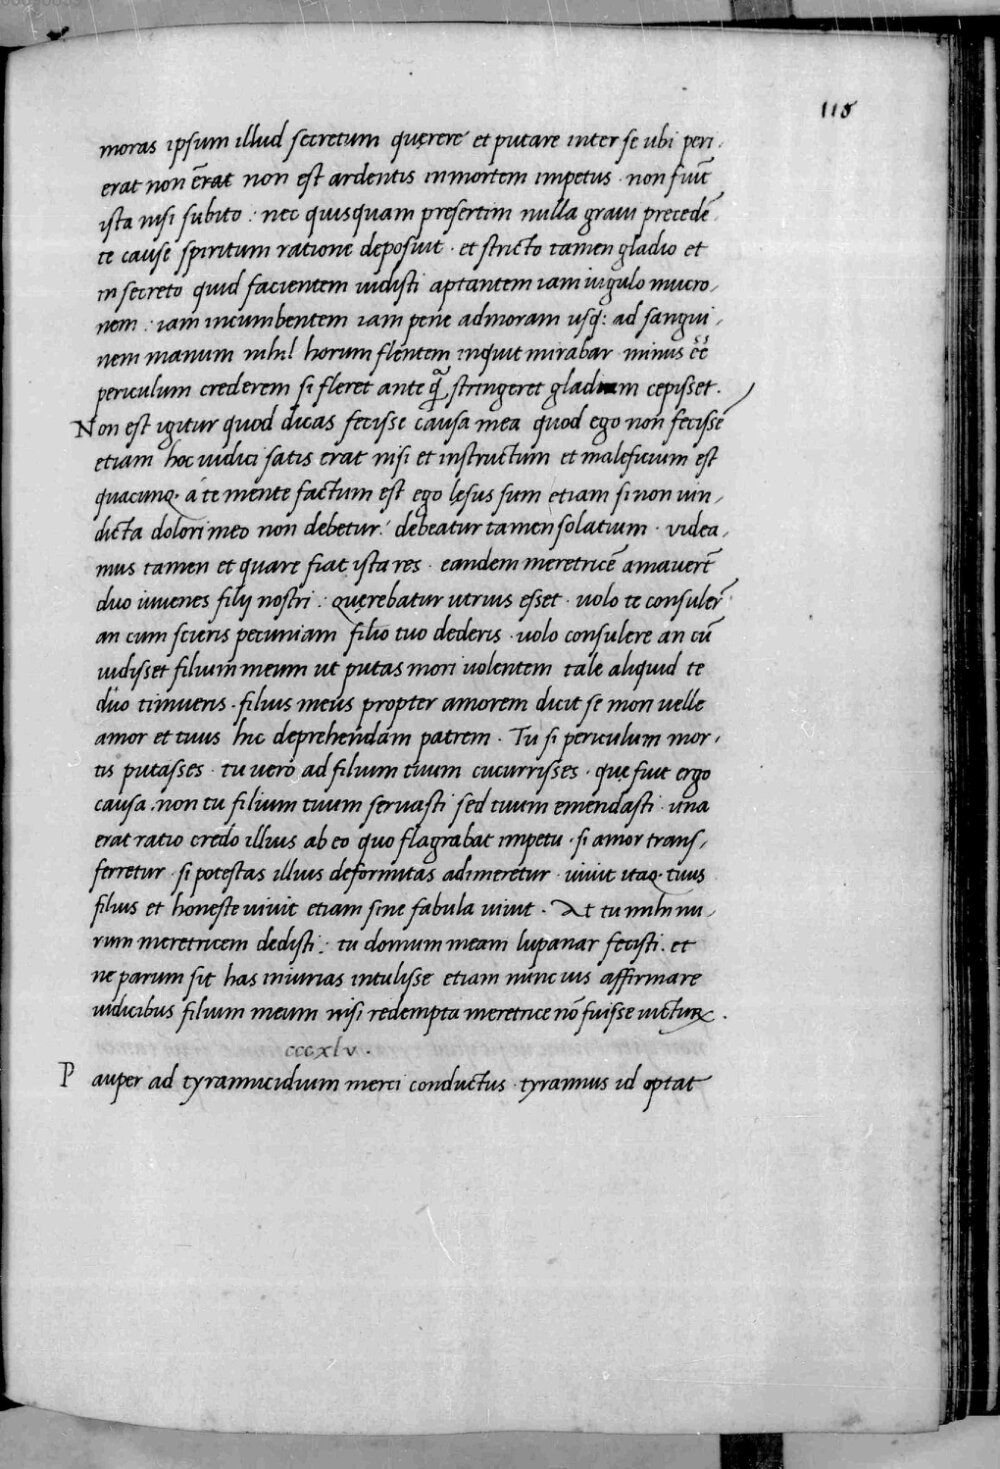 118
moras ipsum illud secretum quęrere et putare inter se ubi peri,
erat non ērat non est ardentis in mortem impetus · non fuit̄
ista nisi subito : nec quisquam presertim nulla graui precedē,
te cause spiritum ratione deposuit · et stricto tamen gladio et
in secreto quid facientem uidisti aptantem iam iugulo mucro,
nem : iam incumbentem iam pene ad moram usq: ad sangui,
nem manum nihil horum flentem inquit mirabar minus ēē
periculum crederem si fleret ante q̃ stringeret gladium cepisset.
Non est igitur quod dicas fecisse causa mea quod ego non fecissē
etiam hoc iudici satis erat nisi et instructum et maleficium est
quacunq · a te mente factum est ego lęsus sum etiam si non uin,
dicta dolori meo non debetur : debeatur tamen solatium · videa,
mus tamen et quare fiat ista res · eandem meretricē amauert̄
duo iuuenes filij nostri : quęrebatur utrius esset · uolo te consuler̄
an cum scieris pecuniam filio tuo dederis · uolo consulere an cū
uidisset filium meum ut putas mori uolentem tale aliquid te
duo timueris · filius meus propter amorem dicit se mon uelle
amor et tuus hic deprehendam patrem · Tu si periculum mor,
tis putasses · tu uero ad filium tuum cucurrisses · quę fuit ergo
causa · non tu filium tuum seruasti sed tuum emendasti · una
erat ratio credo illius ab eo quo flagrabat impetu · si amor trans,
ferretur · si potestas illius deformitas adimeretur · uiuit itaq · tuus
filius et honeste uiuit etiam sine fabula uiuit · At tu mihi nu,
rum meretricem dedisti : tu domum meam lupanar fecisti · et
ne parum sit has iniurias intulisse etiam nunc uis affirmare
iudicibus filium meum nisi redempta meretrice nō fuisse uicturꝝ .
cccxlv .
Pauper ad tyrannicidium merci conductus · tyrannus id optat